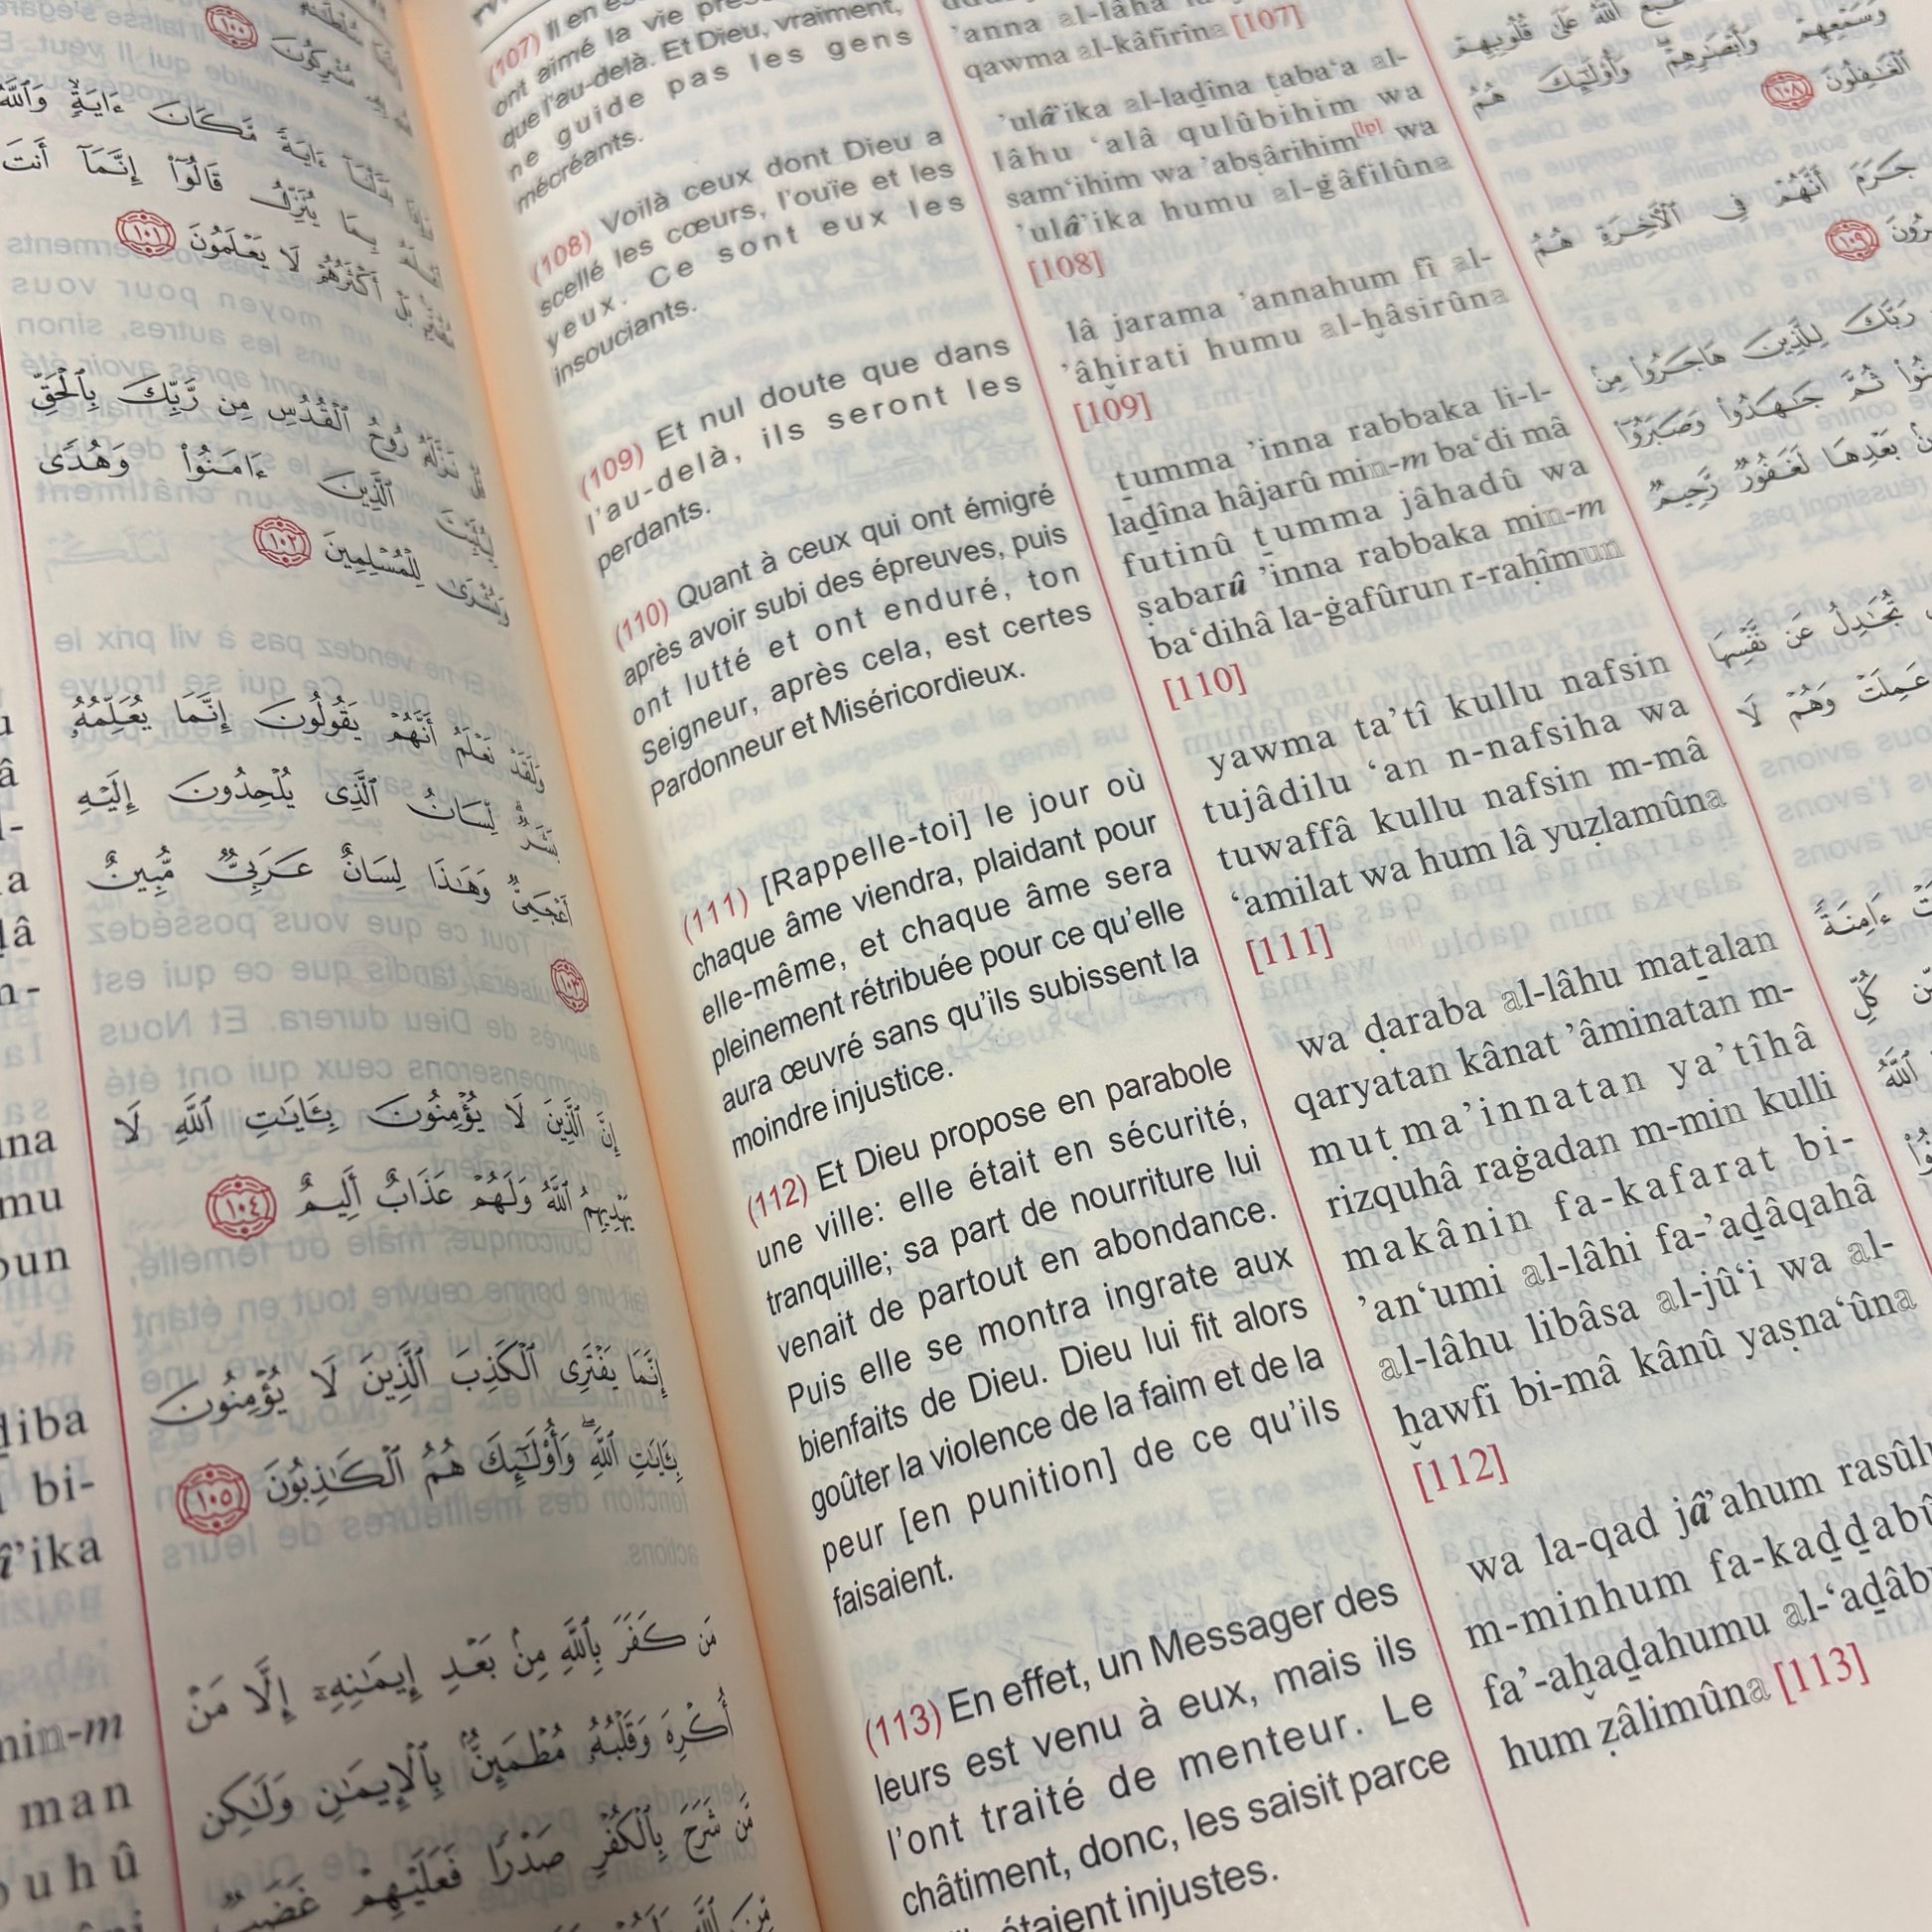 مُّشْرِكُونَ ١٠٠
ءَايَةً مَّكَانَ ءَايَةٍ وَٱللَّهُ
بِمَا يُنَزِّلُ قَالُوٓا۟ إِنَّمَآ أَنتَ
بَلْ أَكْثَرُهُمْ لَا يَعْلَمُونَ ١٠١
قُلْ نَزَّلَهُۥ رُوحُ ٱلْقُدُسِ مِن رَّبِّكَ بِٱلْحَقِّ
ٱلَّذِينَ ءَامَنُوا۟ وَهُدًى
وَبُشْرَىٰ لِلْمُسْلِمِينَ ١٠٢
وَلَقَدْ نَعْلَمُ أَنَّهُمْ يَقُولُونَ إِنَّمَا يُعَلِّمُهُۥ
بَشَرٌ لِّسَانُ ٱلَّذِى يُلْحِدُونَ إِلَيْهِ
أَعْجَمِىٌّ وَهَٰذَا لِسَانٌ عَرَبِىٌّ مُّبِينٌ
١٠٣
إِنَّ ٱلَّذِينَ لَا يُؤْمِنُونَ بِـَٔايَٰتِ ٱللَّهِ لَا
يَهْدِيهِمُ ٱللَّهُ وَلَهُمْ عَذَابٌ أَلِيمٌ ١٠٤
إِنَّمَا يَفْتَرِى ٱلْكَذِبَ ٱلَّذِينَ لَا يُؤْمِنُونَ
بِـَٔايَٰتِ ٱللَّهِ وَأُو۟لَٰٓئِكَ هُمُ ٱلْكَٰذِبُونَ ١٠٥
مَن كَفَرَ بِٱللَّهِ مِنۢ بَعْدِ إِيمَٰنِهِۦٓ إِلَّا مَنْ
أُكْرِهَ وَقَلْبُهُۥ مُطْمَئِنٌّۢ بِٱلْإِيمَٰنِ وَلَٰكِن
مَّن شَرَحَ بِٱلْكُفْرِ صَدْرًا فَعَلَيْهِمْ غَضَبٌ
مِّنَ ٱللَّهِ
una
mu
bi-
min-m
man
(107) Il en es
ont aimé la vie prés
que l'au-delà. Et Dieu, vraiment,
ne guide pas les gens
mécréants.
(108) Voilà ceux dont Dieu a
scellé les cœurs, l'ouïe et les
yeux. Ce sont eux les
insouciants.
(109) Et nul doute que dans
l'au-delà, ils seront les
perdants.
(110) Quant à ceux qui ont émigré
après avoir subi des épreuves, puis
ont lutté et ont enduré, ton
Seigneur, après cela, est certes
Pardonneur et Miséricordieux.
(111) [Rappelle-toi] le jour où
chaque âme viendra, plaidant pour
elle-même, et chaque âme sera
pleinement rétribuée pour ce qu'elle
aura œuvré sans qu'ils subissent la
moindre injustice.
(112) Et Dieu propose en parabole
une ville: elle était en sécurité,
tranquille; sa part de nourriture lui
venait de partout en abondance.
Puis elle se montra ingrate aux
bienfaits de Dieu. Dieu lui fit alors
goûter la violence de la faim et de la
peur [en punition] de ce qu'ils
faisaient.
(113) En effet, un Messager des
leurs est venu à eux, mais ils
l'ont traité de menteur. Le
châtiment, donc, les saisit parce
étaient injustes.
'anna al-lâha
qawma al-kâfirîna [107]
'ulâ'ika al-laḏîna ṭaba‘a al-
lâhu ‘alâ qulûbihim wa
sam‘ihim wa 'abṣârihim[lp] wa
'ulâ'ika humu al-ġâfilûna
[108]
lâ jarama 'annahum fî al-
'âḫirati humu al-ḫâsirûna
[109]
ṯumma 'inna rabbaka li-l-
laḏîna hâjarû min-m ba‘di mâ
futinû ṯumma jâhadû wa
ṣabarû 'inna rabbaka min-m
ba‘dihâ la-ġafûrun r-raḥîmun
[110]
yawma ta'tî kullu nafsin
tujâdilu ‘an n-nafsiha wa
tuwaffâ kullu nafsin m-mâ
‘amilat wa hum lâ yuẓlamûna
[111]
wa ḍaraba al-lâhu maṯalan
qaryatan kânat 'âminatan m-
muṭma'innatan ya'tîhâ
rizquhâ raġadan m-min kulli
makânin fa-kafarat bi-
'an‘umi al-lâhi fa-'aḏâqahâ
al-lâhu libâsa al-jû‘i wa al-
ḫawfi bi-mâ kânû yaṣna‘ûna
[112]
wa la-qad jâ'ahum rasûlu
m-minhum fa-kaḏḏabû
fa'-aḫaḏahumu al-‘aḏâbu
hum ẓâlimûna [113]
ٱللَّهُ عَلَىٰ قُلُوبِهِمْ
وَسَمْعِهِمْ وَأَبْصَٰرِهِمْ وَأُو۟لَٰٓئِكَ هُمُ
ٱلْغَٰفِلُونَ ١٠٨
جَرَمَ أَنَّهُمْ فِى ٱلْءَاخِرَةِ هُمُ
١٠٩
رَبَّكَ لِلَّذِينَ هَاجَرُوا۟ مِنۢ
ثُمَّ جَٰهَدُوا۟ وَصَبَرُوٓا۟
بَعْدِهَا لَغَفُورٌ رَّحِيمٌ
تُجَٰدِلُ عَن نَّفْسِهَا
عَمِلَتْ وَهُمْ لَا
ءَامِنَةً
كُلِّ
ٱللَّهُ